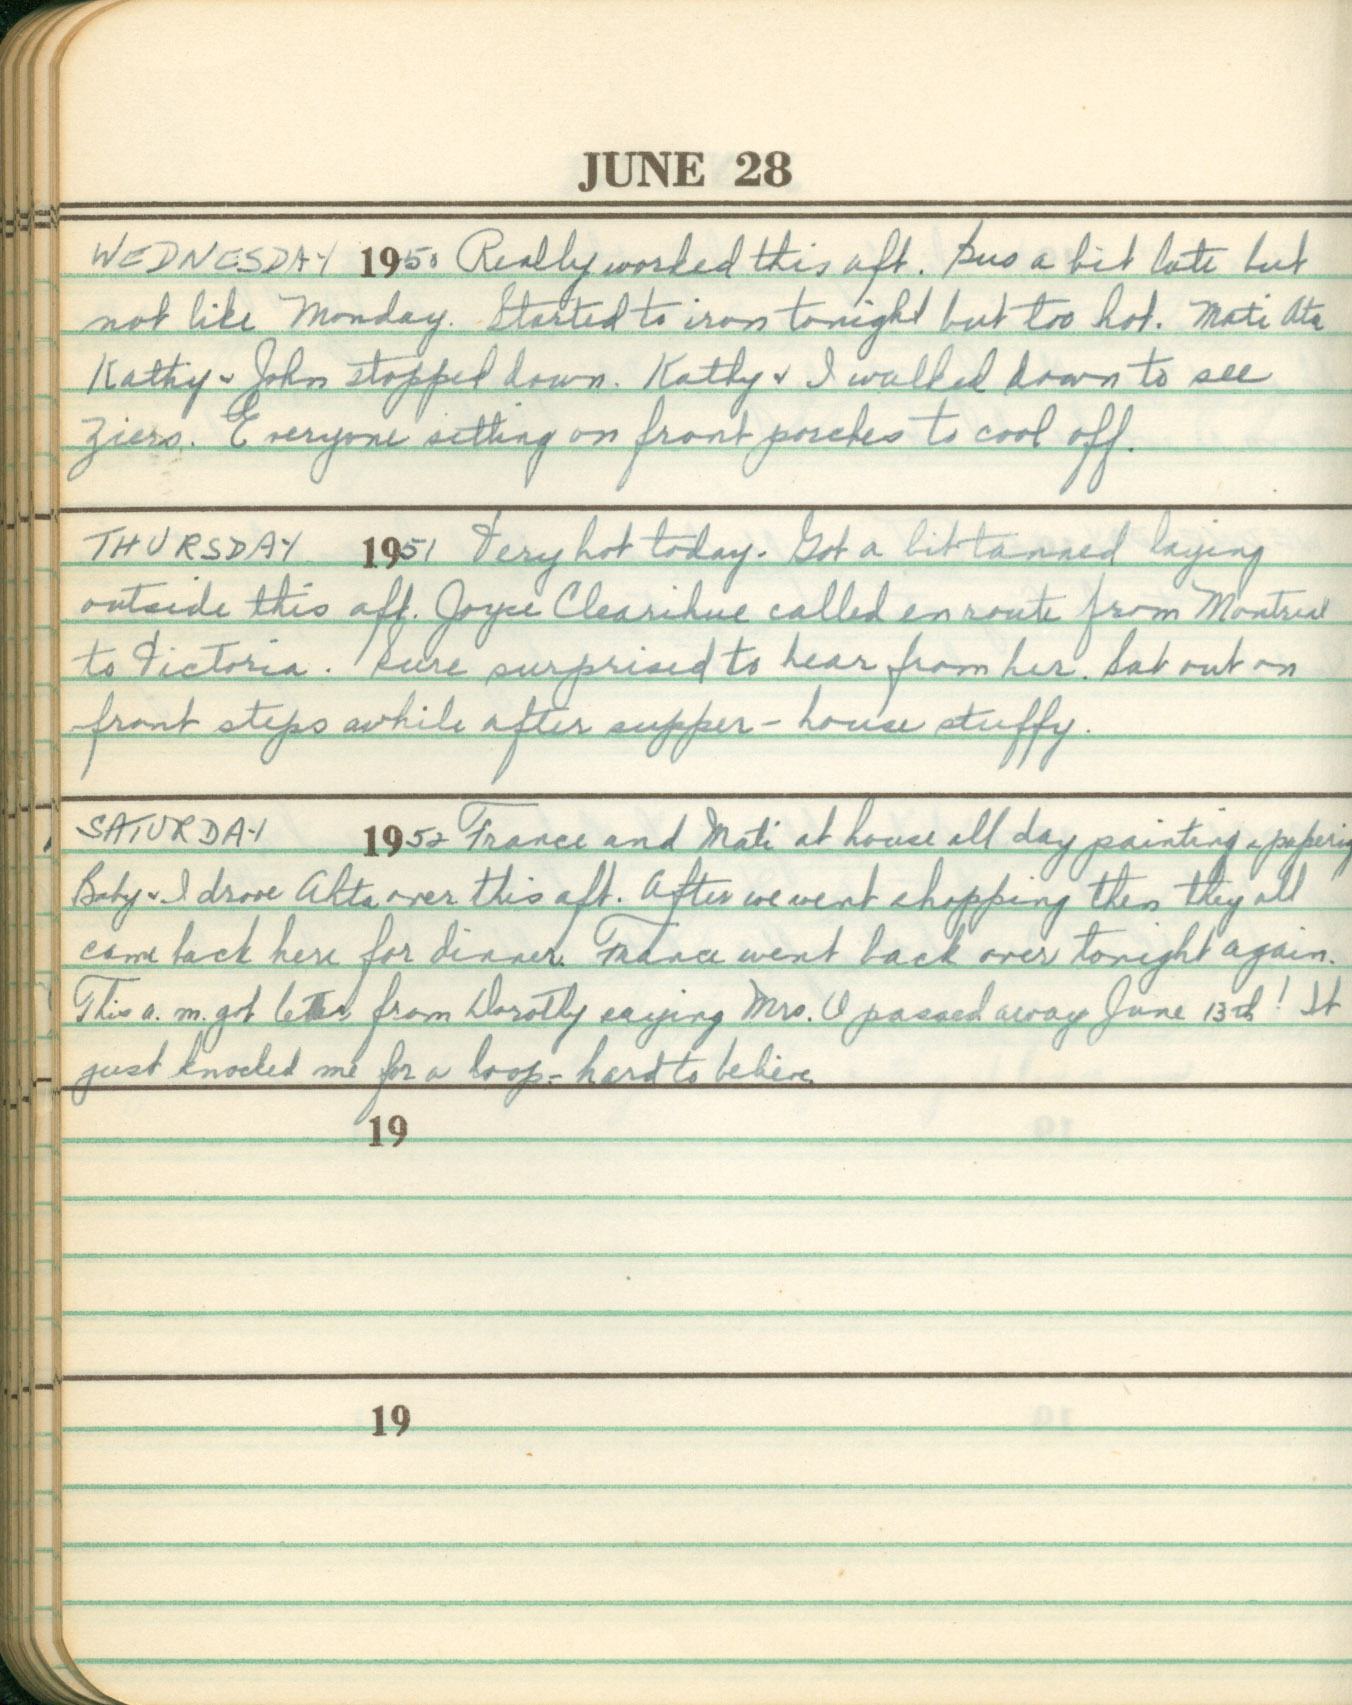 JUNE 28
WEDNESDAY 1950 Really worked this aft. Bus a bit late but
not like Monday. Started to iron tonight but too hot. Mati
Kathy & John stopped down. Kathy & I walked down to see
Ziers. Everyone sitting on front porches to cool off.
THURSDAY 1951 Very hot today. Got a bit tanned laying
outside this aft. Joyce Clearihue called enroute from Montreal
to Victoria. Sure surprised to hear from her. Sat out on
front steps awhile after supper - house stuffy.
SATURDAY 1952 France and Mati at house all day painting & papering
Baby & I drove over this aft. After we went shopping then they all
came back here for dinner. France went back over tonight again.
This a.m. got letter from Dorothy saying Mrs. O passed away June 13th! It
just knocked me for a loop - hard to believe.
19
19